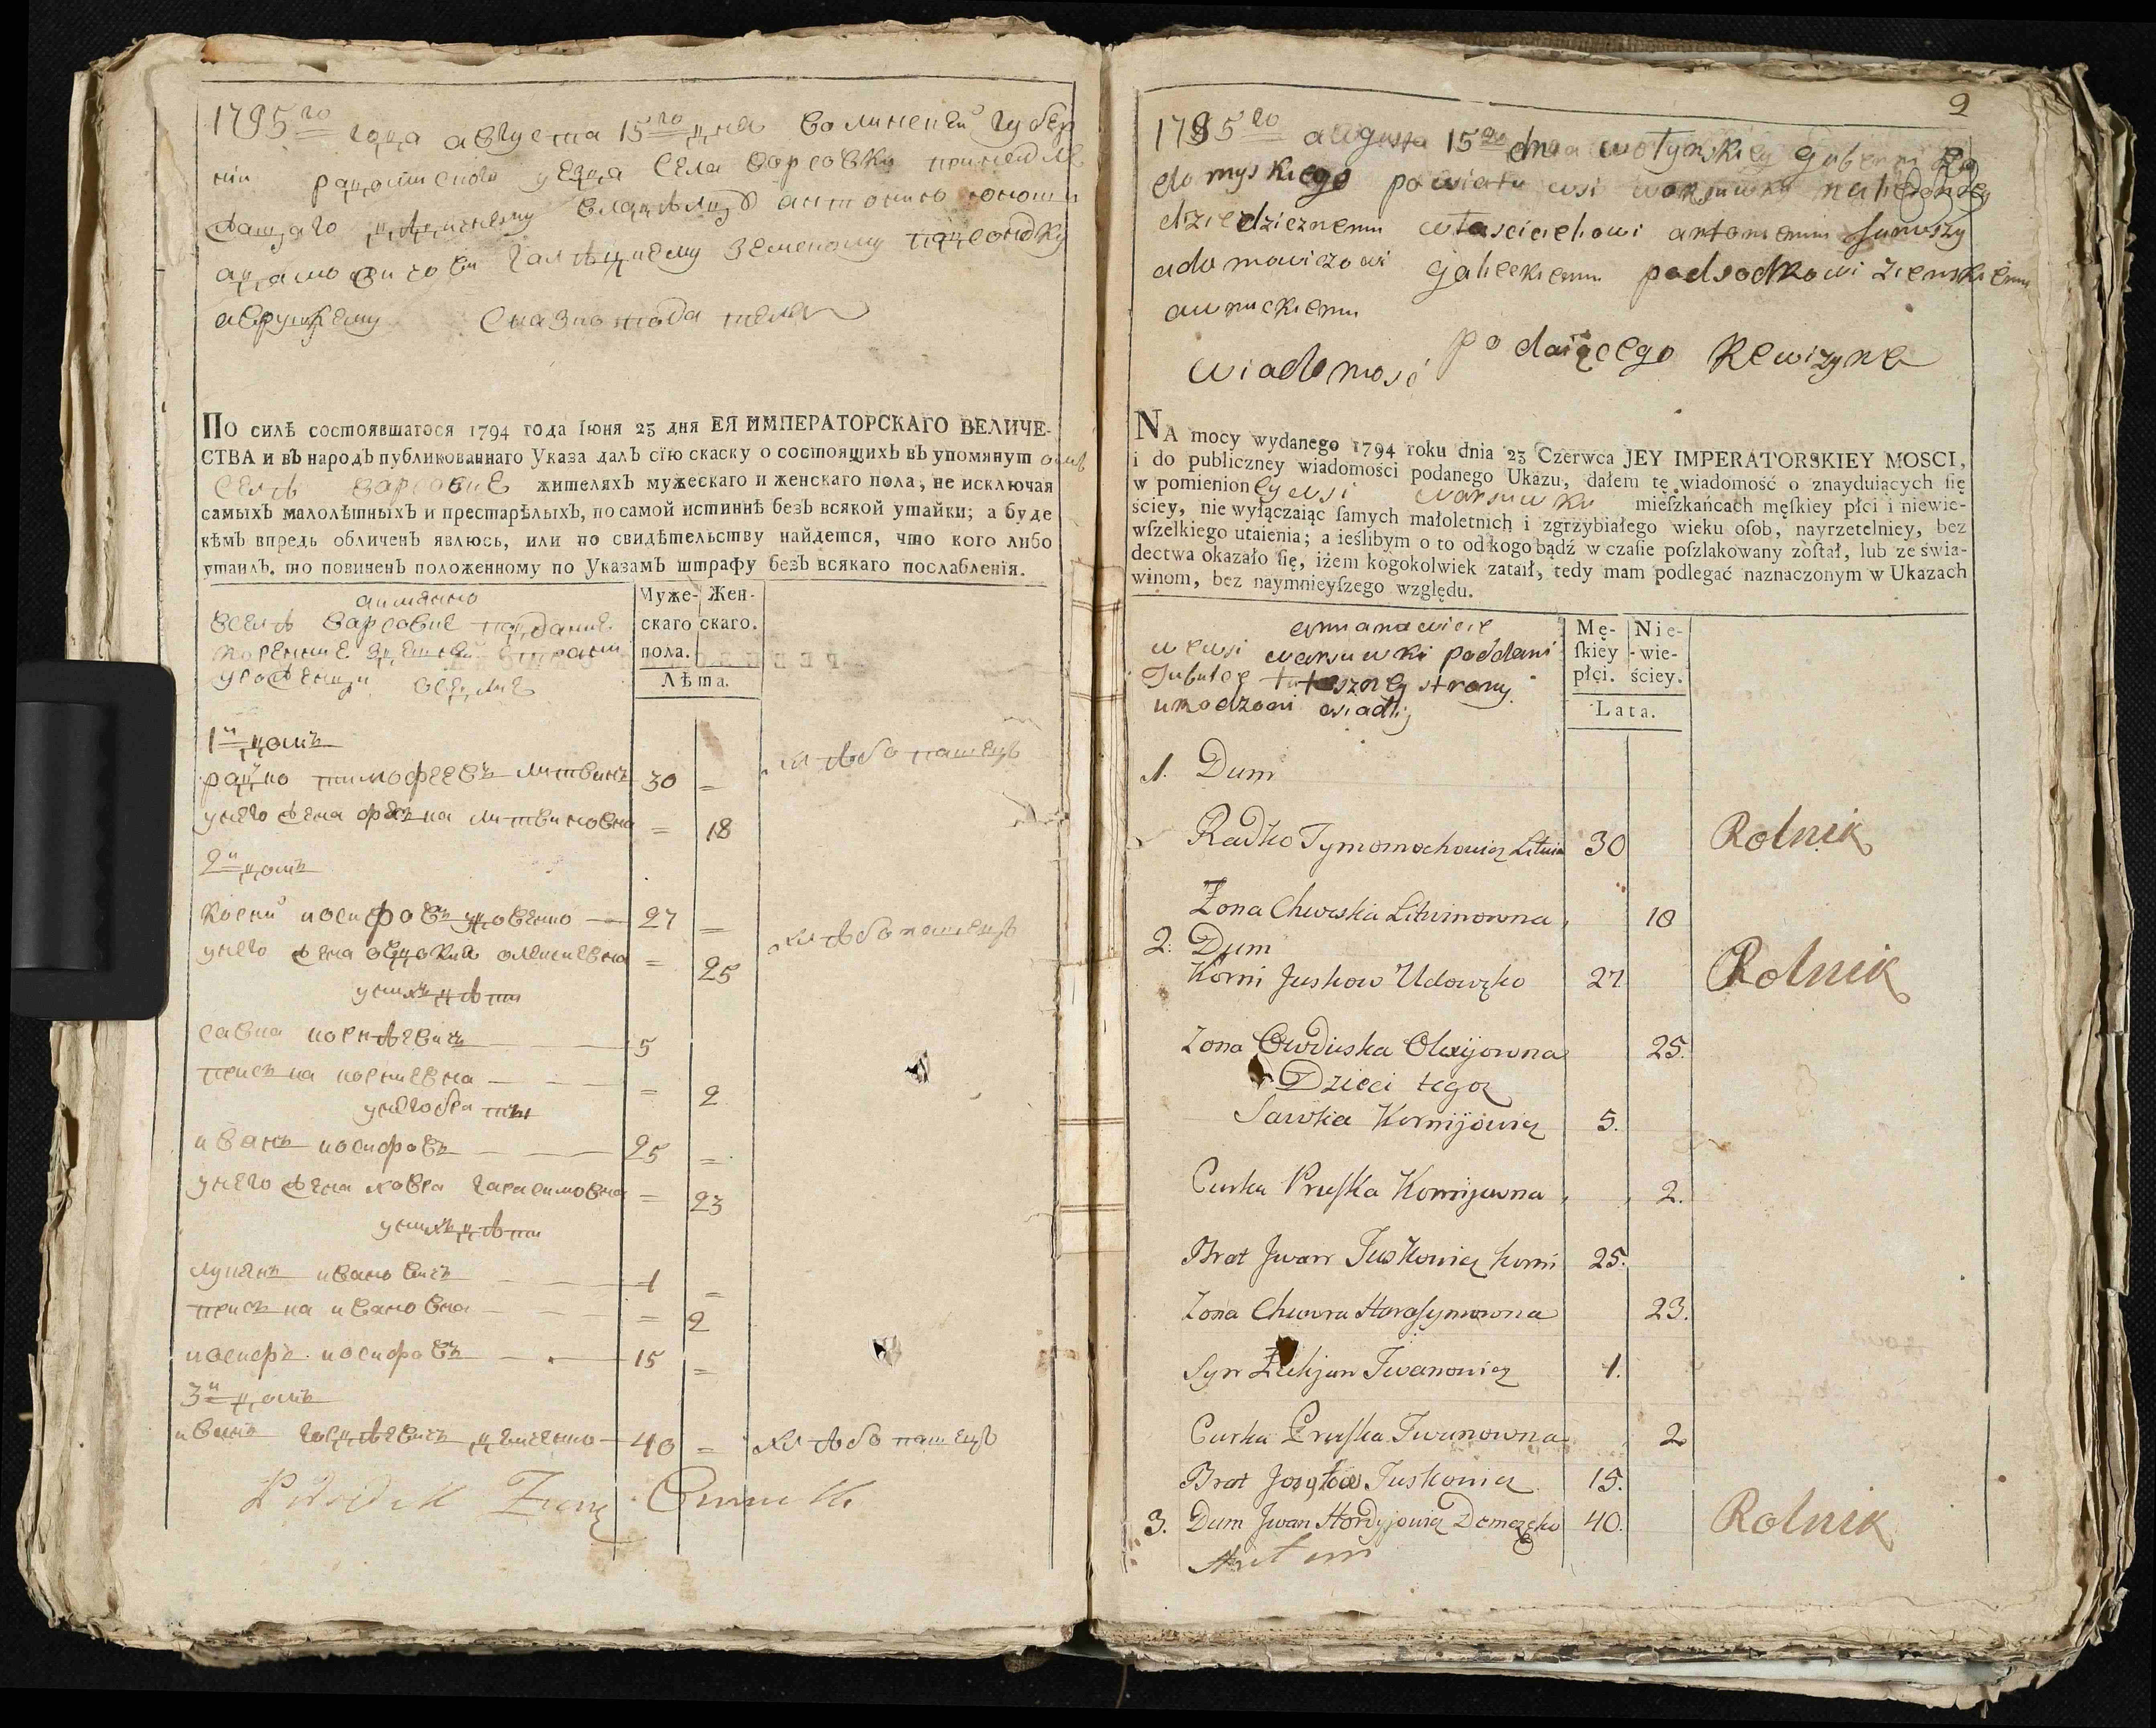 1795го года августа 15го дня Волинскй губер
нїи радомислского уезда села варсовки принадле
жащаго дѣдичному владѣлцу антонию юноши
адамовичови галѣцкему земскому подсендку
овруцкему сказкоподателя
ПО силѣ состоявшагося 1794 года Іюня 23 дня ЕЯ ИМПЕРАТОРСКАГО ВЕЛИЧЕ-
СТВА и въ народъ публикованнаго Указа далъ сїю скаску о состоящихъ въ упомянут омъ
селѣ варсовке жителяхъ мужескаго и женскаго пола, не исключая
самыхъ малолѣтныхъ и престарѣлыхъ, по самой истиннѣ безъ всякой утайки; а буде
кѣмъ впредь обличенъ явлюсь, или по свидѣтельству найдется, что кого либо
утаилъ, то повиненъ положенному по Указамъ штрафу безъ всякаго послабленїя.
аимянно
вселѣ варсовке подание
Муже- Жен-
скаго скаго.
пола.
Лѣта.
1й домъ
радко тимофеевъ литвинъ 30 = хлѣбопашецъ
унего жена февка литвиновна = 18
2й домъ
корни иосифовъ удовенко 27 = хлѣбопашецъ
унего жена овдокия олексиевна = 25
унихъ дѣти
савка корнѣевичъ 5
приська корниевна = 2
унего братъ
иванъ иосифовъ 25 =
унего жена ховра гарасимовна = 23
унихъ дѣти
лукянъ ивановичъ 1 =
приська ивановна = 2
иосифъ иосифовъ 15 =
3й домъ
иванъ гордѣевичъ демченко 40 = хлѣбопашецъ
9
1795go augusta 15go dnia wołynskiey guberni Ra
domyskiego powiatu wsi warsuwky należącey
dziedzicznemu własciciehowi antoniemu Junoszy
adamowiczowi galieckiemu podsodkowi ziemskiemu
awruckiemu
wiadomosć podaiącego Rewizyne
NA mocy wydanego 1794 roku dnia 23 Czerwca JEY IMPERATORSKIEY MOSCI,
i do publiczney wiadomości podanego Ukazu, dałem tę wiadomość o znayduiących ſię
w pomienion ey wsi warsuwki mieſzkańcach męſkiey płci i niewie-
ściey, nie wyłączaiąc ſamych małoletnich i zgrzybiałego wieku oſob, nayrzetelniey, bez
wſzelkiego utaienia; a ieślibym o to od kogo bądź w czaſie poſzlakowany zoſtał, lub ze świa-
dectwa okazało ſię, iżem kogokolwiek zataił, tedy mam podlegać naznaczonym w Ukazach
winom, bez naymnieyſzego względu.
amianowicie
w wsi warsuwki poddani
tuteszney strony
urodzoni osiadli
Mę- Nie-
ſkiey -wie-
płci. ściey.
Lata.
1. Dum
Radko Tymomochowicz Litwin 30 Rolnik
Żona Chweska Litwinowna 18
2. Dum
Korni Juskow Udowęko 27 Rolnik
Zona Owduska Olexijowna 25.
Dzieci tegoz
Sawka Kornijowicz 5.
Curka Pruſka Kornijowna 2.
Brat Jwan Juskowicz Korni 25.
Zona Chwora Harasymowna 23.
Syn Łukjan Iwanowicz 1.
Curka Pruſka Iwanowna 2
Brat Jozyp Juskowicz 15.
3. Dum Jwan Hordyjowicz Demczęko 40. Rolnik